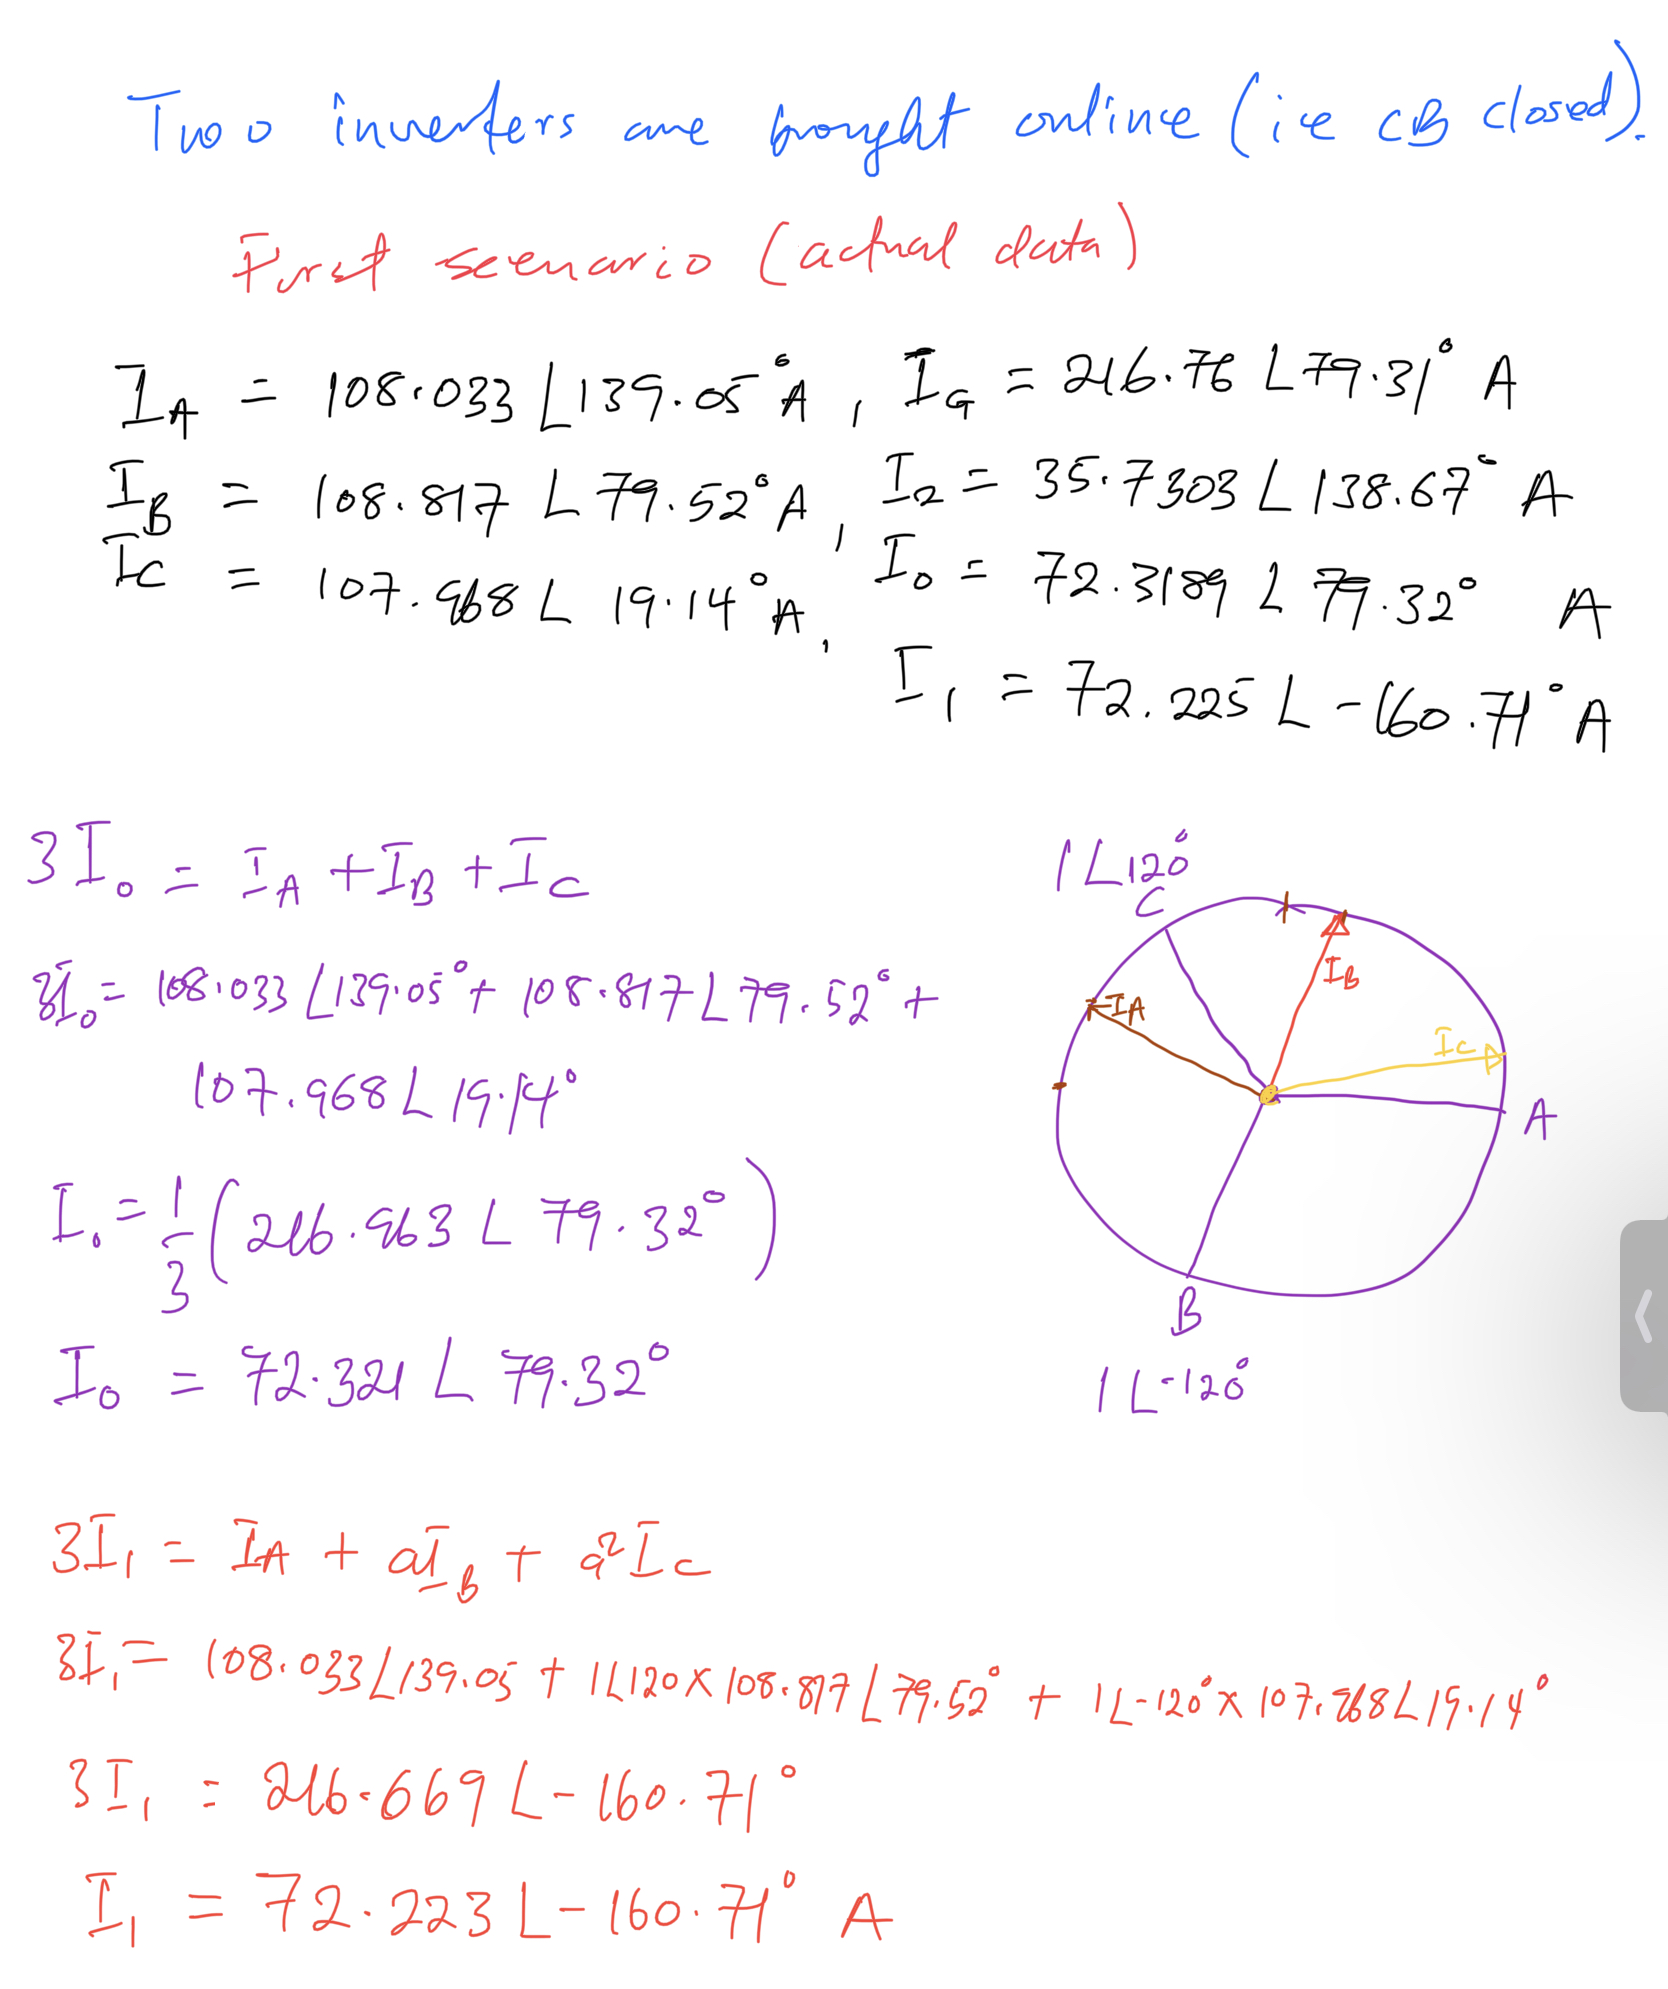 Two inverters are brought onlince (ie CB closed).
First scenario (actual data)
I_A = 108.033 ∠139.05° A, I_G = 216.76 ∠79.31° A
I_B = 108.817 ∠79.52° A, I_2 = 35.7303 ∠138.67° A
I_C = 107.968 ∠19.14° A, I_0 = 72.3189 ∠79.32° A
I_1 = 72.225 ∠-160.71° A
3I_0 = I_A + I_B + I_C
3I_0 = 108.033 ∠139.05° + 108.817 ∠79.52° +
107.968 ∠19.14°
I_0 = 1/3 (216.963 ∠79.32°)
I_0 = 72.321 ∠79.32°
1∠120°
C
I_B
I_A
I_C
A
B
1∠-120°
3I_1 = I_A + aI_B + a²I_C
3I_1 = 108.033∠139.05 + 1∠120 × 108.817∠79.52° + 1∠-120° × 107.968∠19.14°
3I_1 = 216.669 ∠-160.71°
I_1 = 72.223 ∠-160.71° A